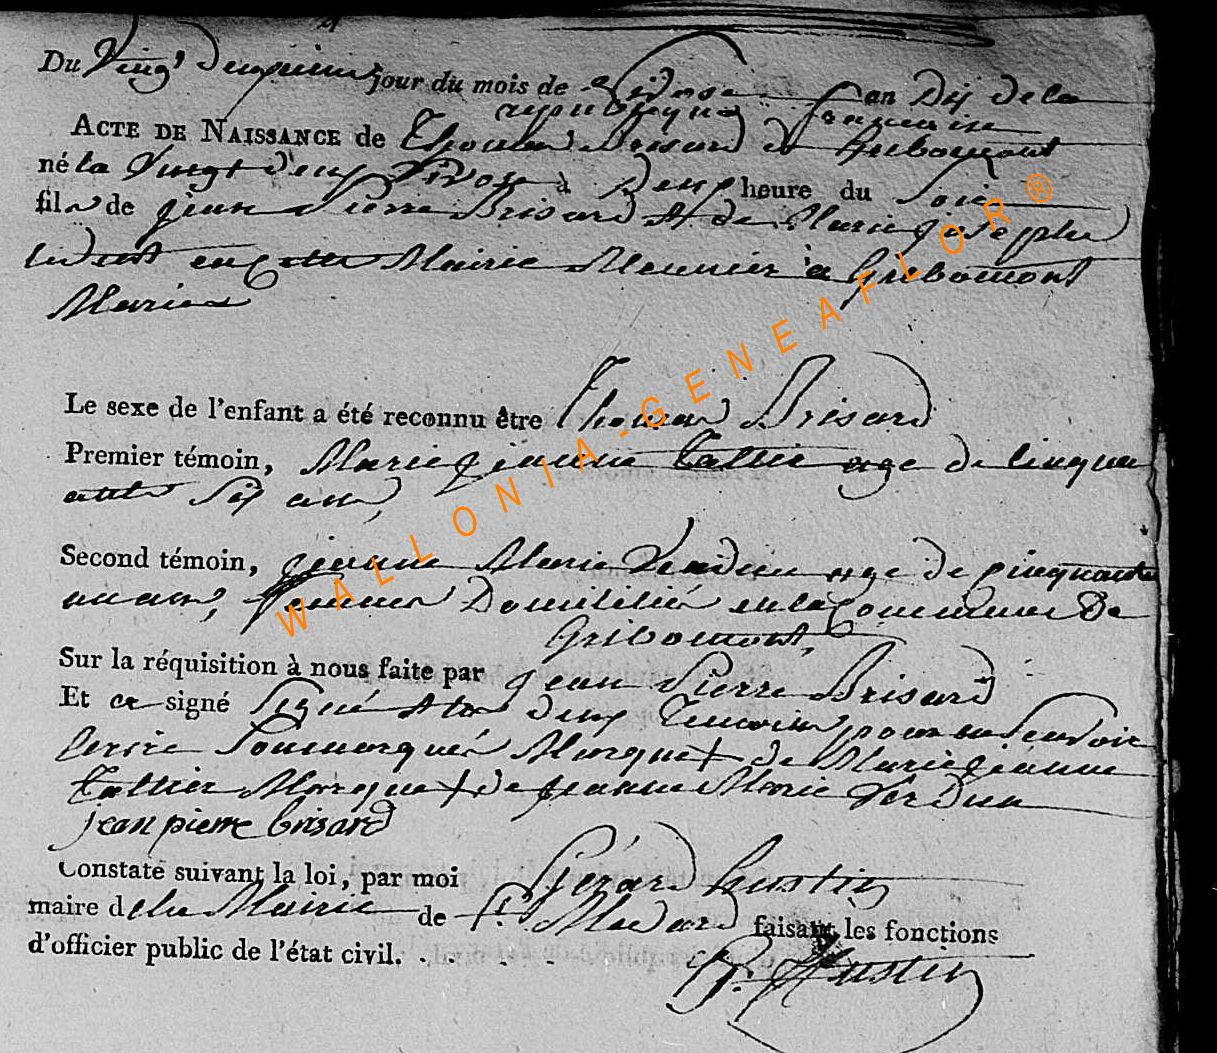 Du Vingt Deuxieme jour du mois de Nivose an Dix de la
republique francaise
ACTE DE NAISSANCE de Thomas Brisard de Gribomont
né le Vingt deux Nivose à Deux heure du Soir
fils de jean Pierre Brisard et de Marie joseph
en cette Mairie Meunier à Gribomont
Mariés
Le sexe de l'enfant a été reconnu être Thomas Brisard
Premier témoin, Marie jeanne Tallier age de cinqua
ante Six ans,
Second témoin, jeanne Marie Verdun age de cinquante
un ans, Domiciliés en la Commune de
Gribomont,
Sur la réquisition à nous faite par jean Pierre Brisard
Et a signé Signé et les deux Temoins pour ne Scavoir
Ecrire Sousmarqués Marque + de Marie jeanne
Tallier Marque + de jeanne Marie Verdun
jean pierre brisard
Constaté suivant la loi, par moi Gérard hustin
maire de la Mairie de St. Medard faisant les fonctions
d'officier public de l'état civil. . . . .
G. Hustin
WALLONIA-GENEAFLOR®